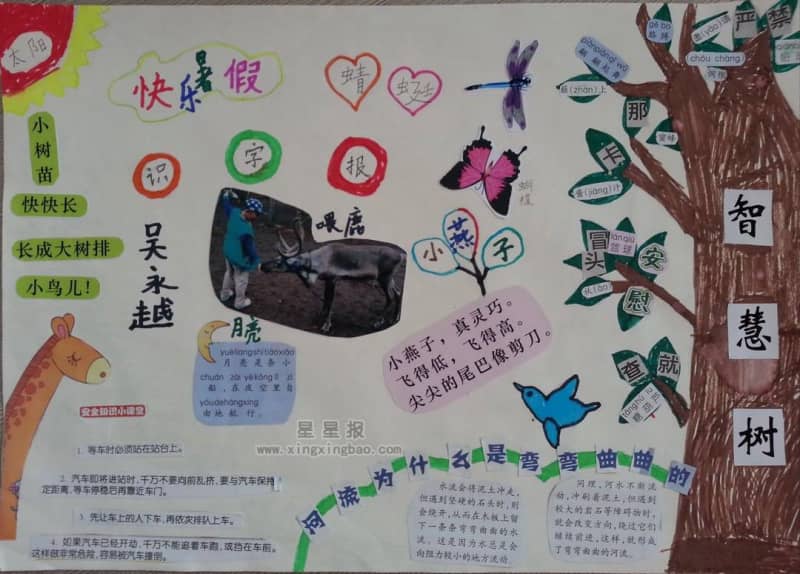 太阳
快乐暑假
蜻蜓
识字报
小树苗
快快长
长成大树排
小鸟儿！
吴永越
喂鹿
小燕子
小燕子，真灵巧。
飞得低，飞得高。
尖尖的尾巴像剪刀。
yuèliangshìtiáoxiǎo
月亮是条小
chuán zài yèkōnglǐ
船，在夜空里自
yóudehángxíng
由地航行。
安全知识小课堂
1. 等车时必须站在站台上。
2. 汽车即将进站时，千万不要向前乱挤，要与汽车保持
定距离，等车停稳后再靠近车门。
3. 先让车上的人下车，再依次排队上车。
4. 如果汽车已经开动，千万不能追着车跑，或挡在车前。
这样做非常危险，容易被汽车撞倒。
星星报
www.xingxingbao.com
河流为什么是弯弯曲曲的
水流会将泥土冲走，
但遇到坚硬的石头时，则
会绕开，从而在木板上留
下一条条弯弯曲曲的水
流。这是因为水总是会
向阻力较小的地方流动。
同理，河水不断流
动，冲刷着泥土，但遇到
较大的岩石等障碍物时，
就会改变方向，绕过它们
继续前进，这样，就形成
了弯弯曲曲的河流。
严禁
那
卡
冒
头
安
慰
lánqiú
篮球
查
就
智慧树